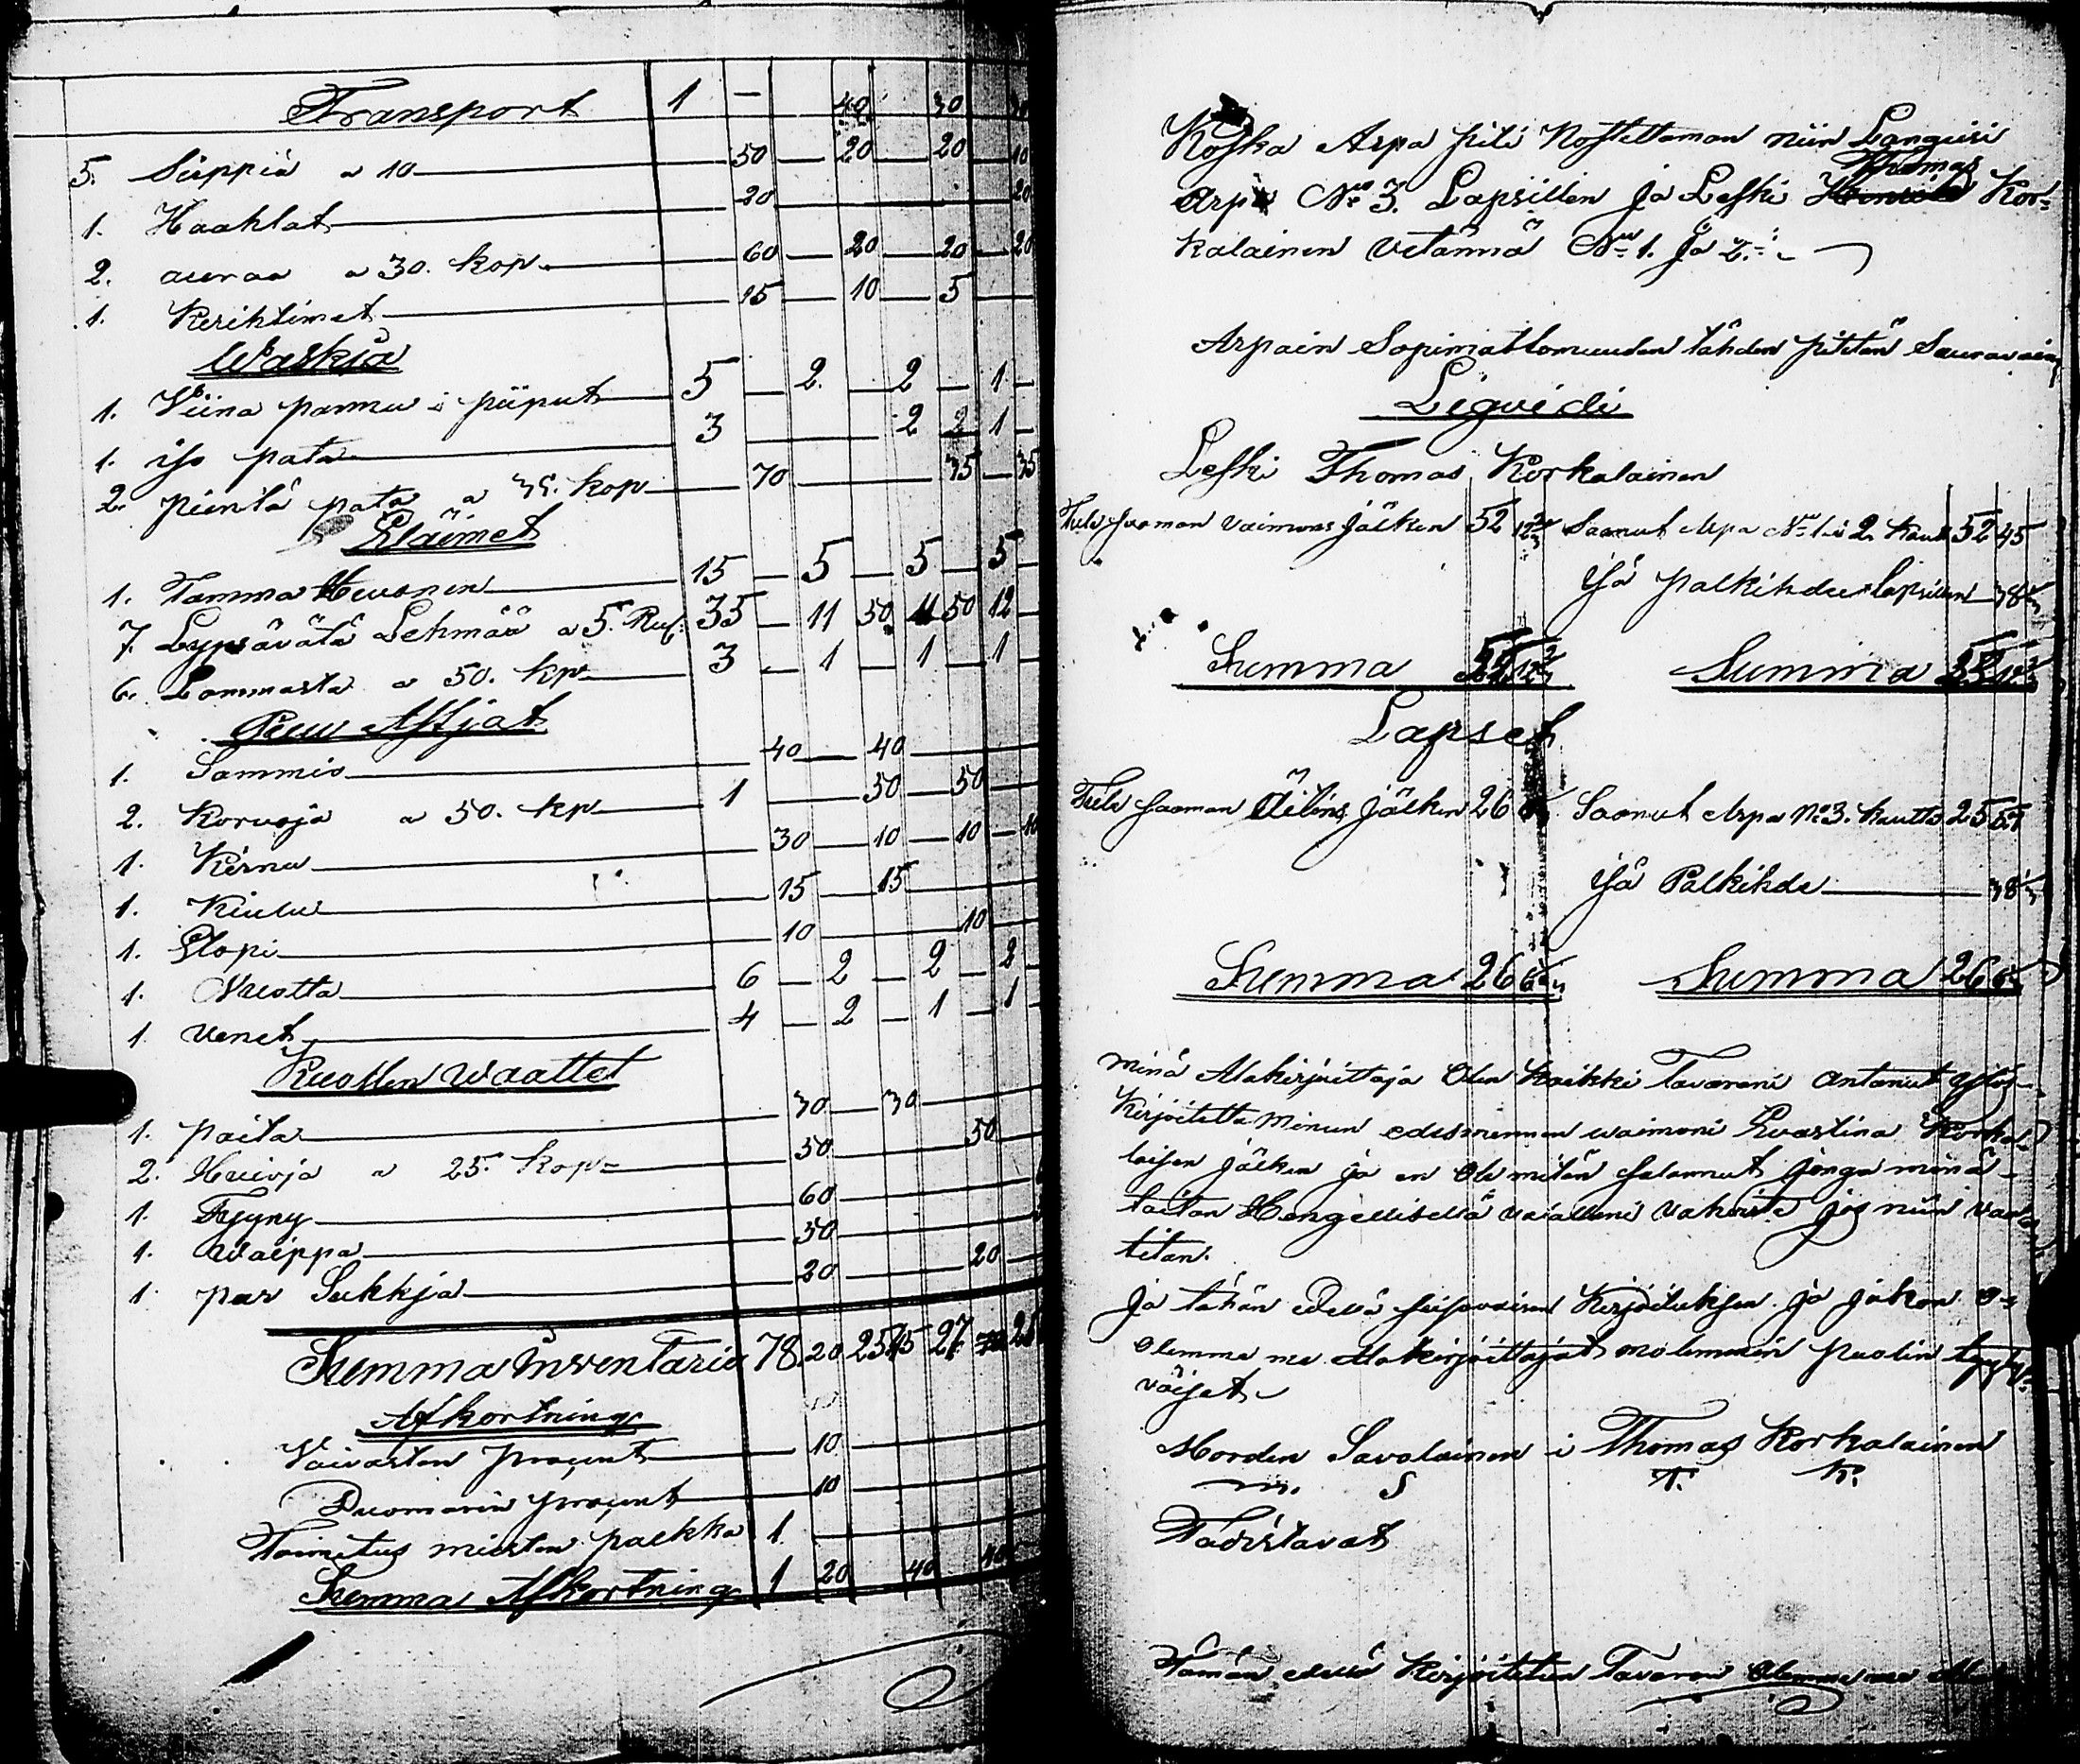 Transport 1 — 40 30
5. Sirppiä a 10 50 20 20 10
1. Haahlat 20 20
2. auraa a 30. kop. 60 20 20 20
1. Keriktimet 15 10 5
Waskja
1. Viina pannu i piiput 5 2. 2 1
1. iso pata 3 2 1
2. pientä pata a 35. kop 70 35 35
Eläimet
1. Tamma Hevonen 15 5 5 5
7. Lypsävätä Lehmää a 5. Rub: 35 11 50 11 50 12
6. Lammasta a 50. kp 3 1 1 1
Puu Astjat
1. Sammio 40 40
2. Korvoja a 50. kp 1 50 50
1. Kirnu 30 10 10 10
1. Kiulu 15 15
1. Stopi 10 10
1. Nuotta 6 2 2 2
1. Venet 4 2 1 1
Kuollen Waattet
1. paita 30 30
2. Huivja a 25. kop 50 50
1. Tyyny 60
1. Waippa 50
1. par Sukkja 20 20
Summa inventario 78 20 25 45 27
Afkortning
Vaivasten procent 10
Duomarin procent 10
Toimitus miesten palkka 1
Summa Afkortning 1 20 40 40
Koska Arpa piti Nostettaman niin Langeisi
Thomas
Arpa No 3. Lapsillen ja Leski Kor=
kalainen vetännä No 1. Ja 2.
Arpain Sopimattomuuden tähden pitetän Seuravaing
Liqvidi
Leski Thomas Korkalainen
Tule saaman vaimons jälken 52 Saanut Arpa No 1 i 2. kaut 52 45
Jää palkihde lapsillen
Summa Summa
Lapset
Tule saaman Äitins jälken 26 Saanut Arpa No 3. kautta 25
Jää Palkihde
Summa 26 Summa 26
minä Alakirjoittaja Olen kaikki Tavarani antanut ylös
kirjoitetta minun edesmennen waimoni Kristina Korka
laisen jälken ja en ole mitän salannut jonga minä
taitan Hengellisellä valallani vahvista jos niin vaa
titan.
Ja tähän edellä seisovaisen kirjoituksen ja jakon
olemma me Alakirjoittajat molemmin puolin tyyty
väiset
Morden Savolainen i Thomas Korkalainen
m. S T. K.
Todistavat
Tämän edellä kirjoitetun Tavaran olemma me